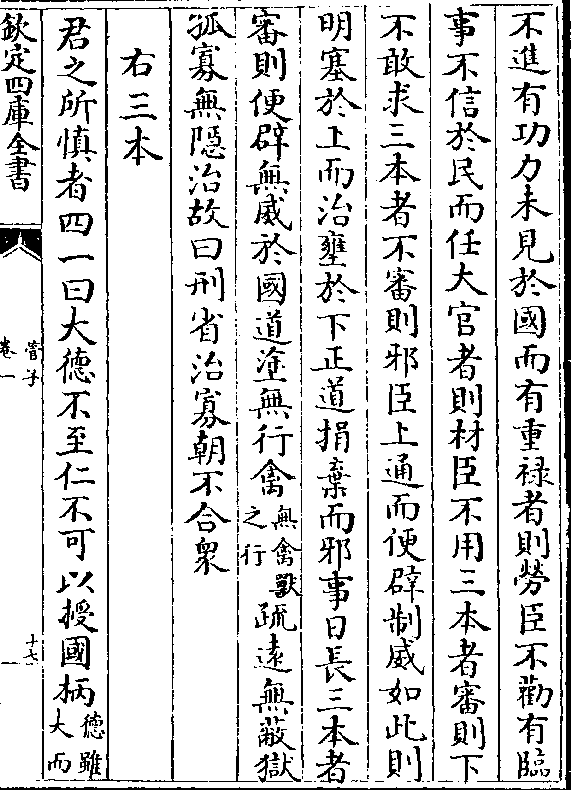 不進有功力未見於國而有重禄者則勞臣不勸有臨
事不信於民而任大官者則材臣不用三本者審則下
不敢求三本者不審則邪臣上通而便辟制威如此則
明塞於上而治壅於下正道捐棄而邪事日長三本者
審則便辟無威於國道塗無行禽無禽獸之行疏遠無蔽獄
孤寡無隱治故曰刑省治寡朝不合衆
右三本
君之所慎者四一曰大德不至仁不可以授國柄德雖大而
欽定四庫全書
管子
卷一
十七